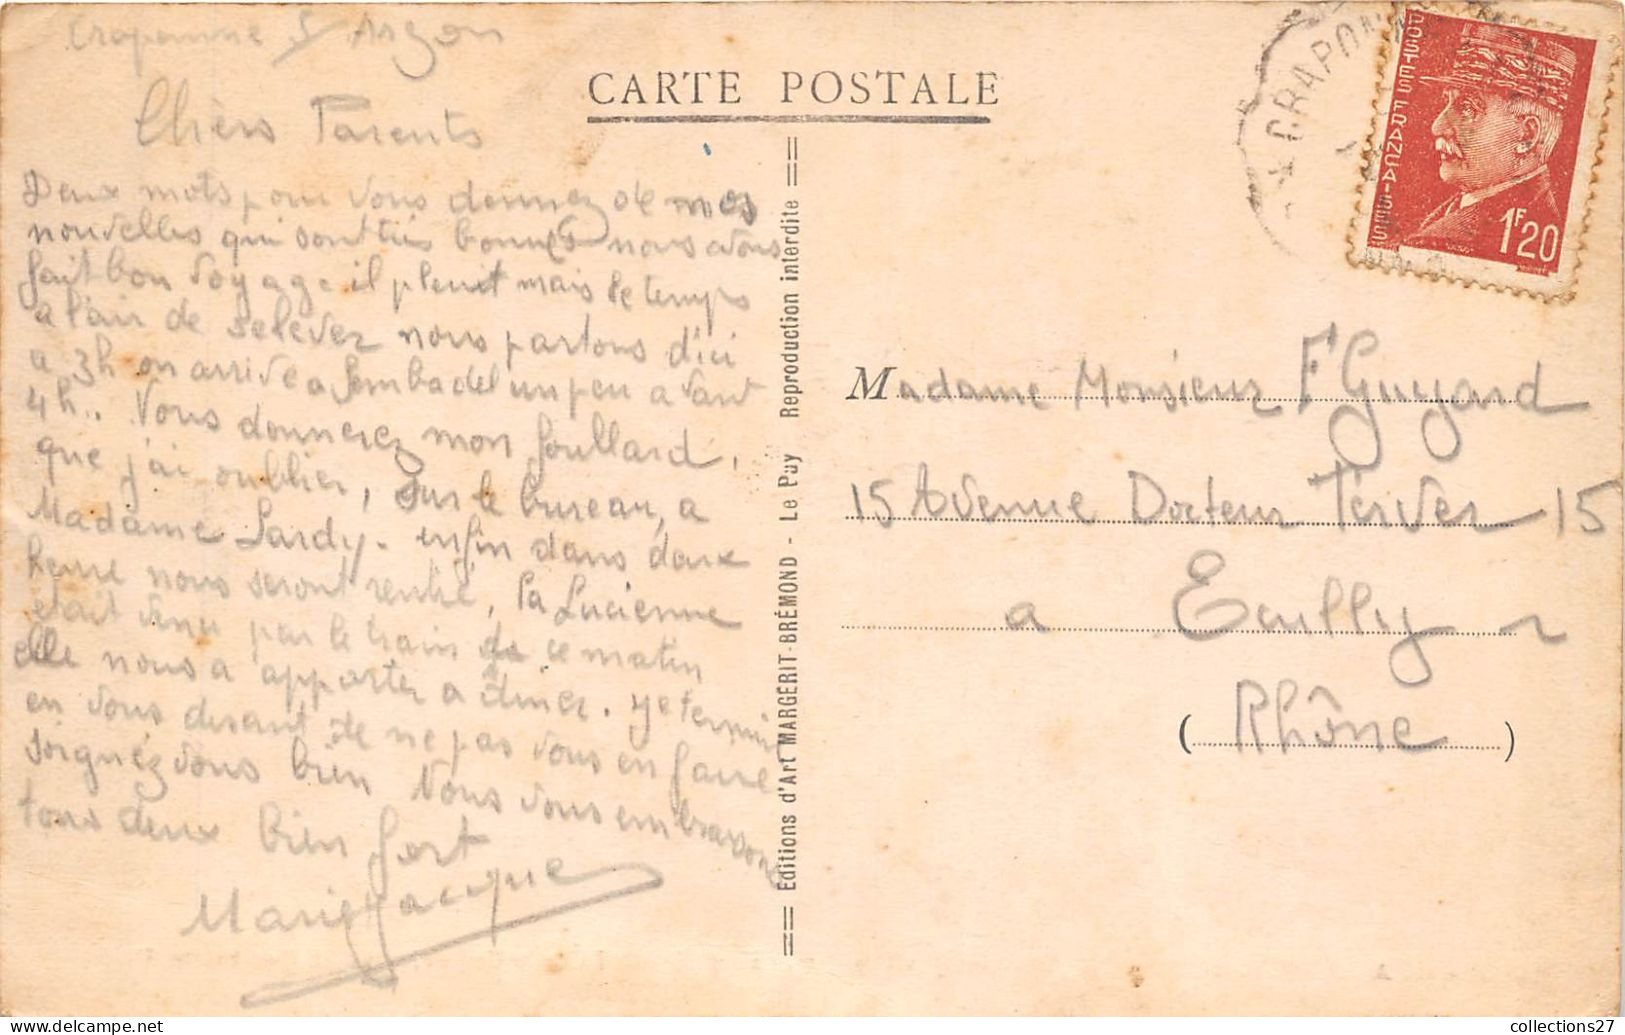 Craponne S/ Arzon
Chers Parents
Deux mots pour vous donnez de mes
nouvelles qui sont tres bonnes nous avons
fait bon voyage il pleut mais le temps
a l'air de se lever nous partons d'ici
a 3h on arrive a Sembadel un peu avant
4h.. Vous donnerez mon foullard,
que j'ai oublier, sur le bureau, a
Madame Lardy. enfin dans deux
heure nous seront rentré, la Lucienne
etait venu par le train de ce matin
elle nous a apporter a diner. je termine
en vous disant de ne pas vous en faire
soignez vous bien Nous vous embrassons
tous deux bien fort
Marie Jacque
CARTE POSTALE
Editions d'Art MARGERIT-BRÉMOND - Le Puy Reproduction interdite
CRAPONNE
POSTES FRANÇAISES
1F20
Madame Monsieur F Guyard
15 Avenue Docteur Terver 15
a Ecully
(Rhône)
collections27